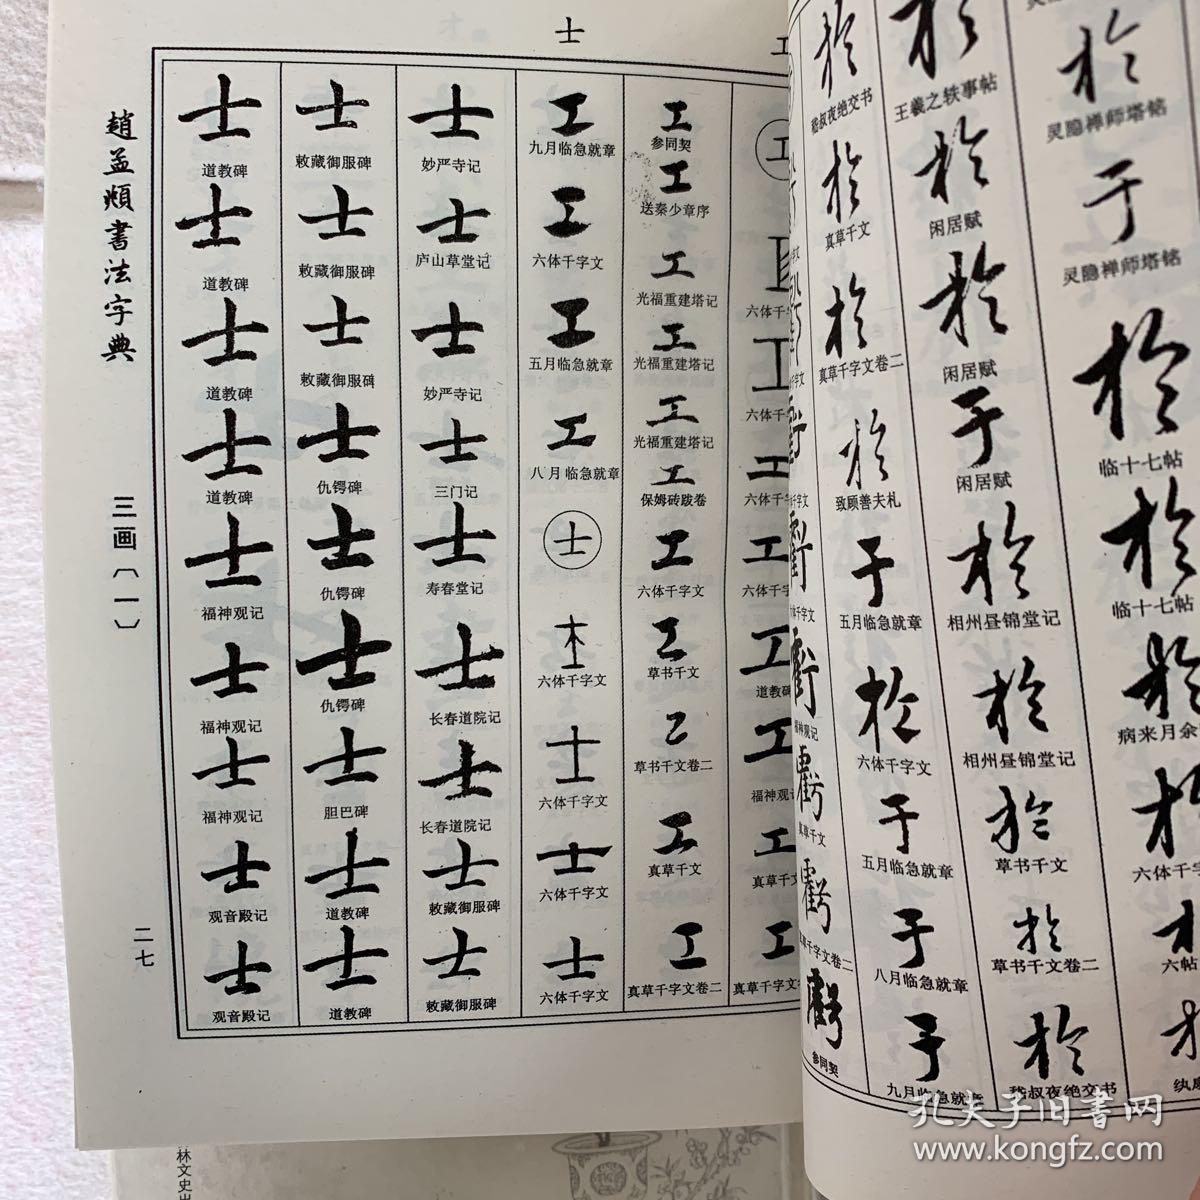 士
工
趙孟頫書法字典
三画〔一〕
二七
工
工
工
工
工
工
工
工
工
参同契
送秦少章序
光福重建塔记
光福重建塔记
光福重建塔记
保姆砖跋卷
六体千字文
草书千文
草书千文卷二
真草千文
真草千字文卷二
工
工
工
工
九月临急就章
六体千字文
五月临急就章
八月临急就章
士
六体千字文
六体千字文
六体千字文
六体千字文
士
妙严寺记
士
庐山草堂记
士
妙严寺记
士
三门记
士
寿春堂记
士
长春道院记
士
长春道院记
士
敕藏御服碑
士
敕藏御服碑
士
敕藏御服碑
士
敕藏御服碑
士
敕藏御服碑
士
仇锷碑
士
仇锷碑
士
仇锷碑
士
胆巴碑
士
道教碑
士
道教碑
士
道教碑
士
道教碑
士
道教碑
士
道教碑
士
福神观记
士
福神观记
士
福神观记
士
观音殿记
士
观音殿记
灵隐禅师塔铭
于
灵隐禅师塔铭
於
临十七帖
於
临十七帖
病来月余
王羲之轶事帖
於
闲居赋
於
闲居赋
于
闲居赋
於
相州昼锦堂记
於
相州昼锦堂记
於
草书千文
於
草书千文卷二
於
嵇叔夜绝交书
嵇叔夜绝交书
於
真草千文
於
真草千字文卷二
於
致顾善夫札
于
五月临急就章
於
六体千字文
于
五月临急就章
于
八月临急就章
于
九月临急就章
福神观记
虧
真草千文
虧
真草千字文卷二
虧
参同契
孔夫子旧书网
www.kongfz.com
林文史出